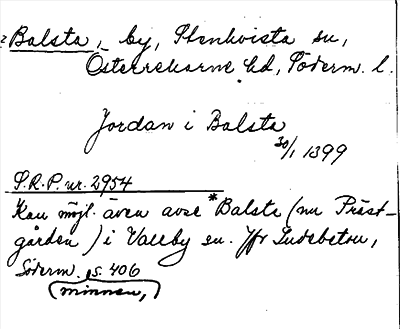 Balsta, by, Stenkvista sn,
Österrekarne hd, Söderm. l.
Jordan i Balsta
30/1 1399
S.R.P. nr. 2954
Kan möjl. även avse *Balsta (nu Präst-
gården) i Vallby sn. Jfr Ludebeton,
Söderm. s. 406
(minnen,)